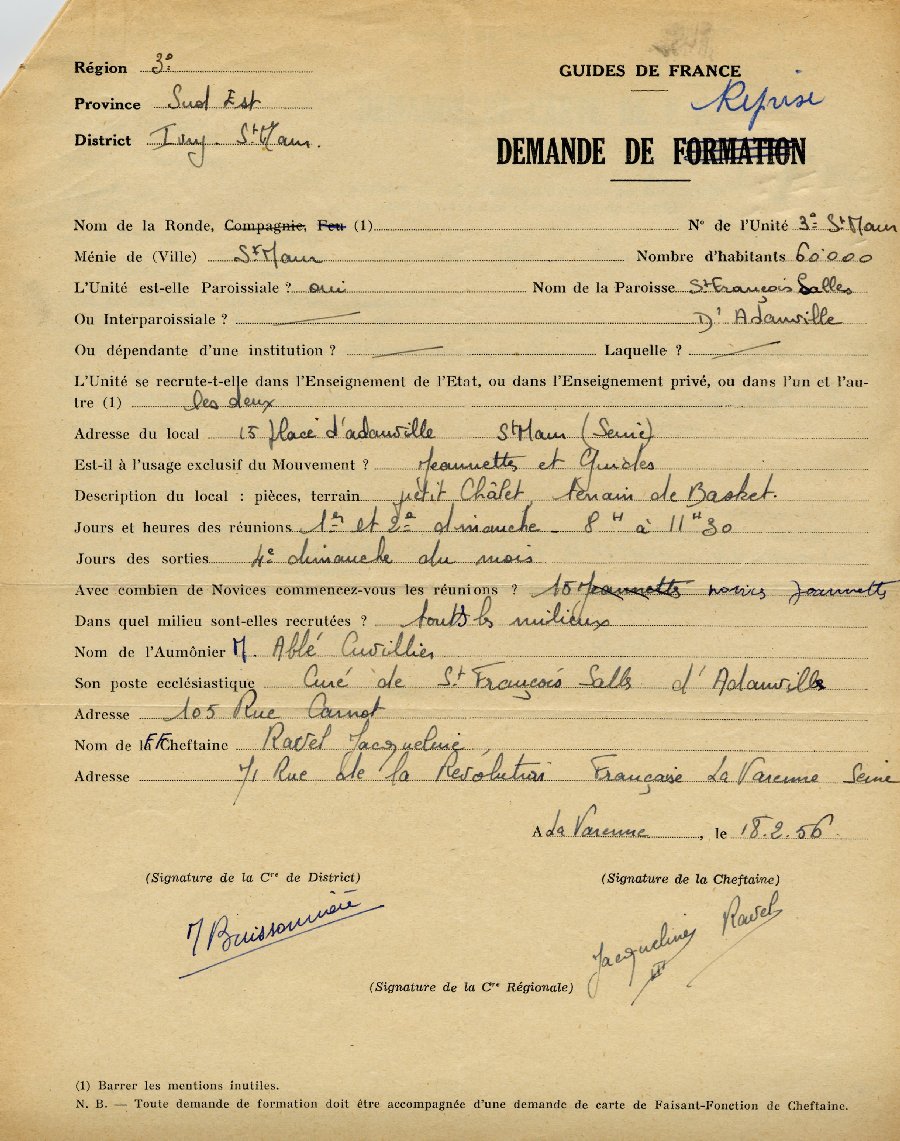 Région 3e
GUIDES DE FRANCE
Province Sud Est
Reprise
District Ivry - St Maur.
DEMANDE DE FORMATION
Nom de la Ronde, Compagnie, Feu (1) N° de l'Unité 3e St Maur
Ménie de (Ville) St Maur Nombre d'habitants 60.000
L'Unité est-elle Paroissiale ? oui Nom de la Paroisse St François Salles
Ou Interparoissiale ? D'Adamville
Ou dépendante d'une institution ? Laquelle ?
L'Unité se recrute-t-elle dans l'Enseignement de l'Etat, ou dans l'Enseignement privé, ou dans l'un et l'au-
tre (1) les deux
Adresse du local 15 place d'adamville St Maur (Seine)
Est-il à l'usage exclusif du Mouvement ? Jeannettes et Guides
Description du local : pièces, terrain petit Châlet, terrain de Basket.
Jours et heures des réunions 1er et 2e dimanche - 8 H à 11 H 30
Jours des sorties 4e dimanche du mois
Avec combien de Novices commencez-vous les réunions ? 15 Jeannettes novices Jeannettes
Dans quel milieu sont-elles recrutées ? tous les milieux
Nom de l'Aumônier M. Abbé Cuvillier
Son poste ecclésiastique Curé de St François Salles d'Adamville
Adresse 105 Rue Carnot
Nom de la FF Cheftaine Ravel Jacqueline
Adresse 71 Rue de la Révolution Française La Varenne Seine
A La Varenne, le 18.2.56
(Signature de la Cre de District) (Signature de la Cheftaine)
M Buissonnière
Jacqueline Ravel
(Signature de la Cre Régionale)
(1) Barrer les mentions inutiles.
N. B. — Toute demande de formation doit être accompagnée d'une demande de carte de Faisant-Fonction de Cheftaine.